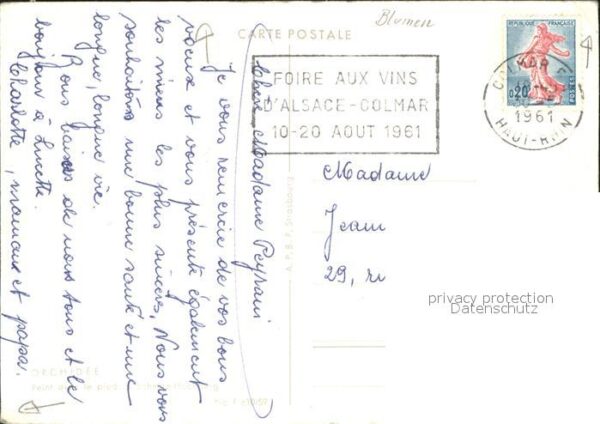 Blumen
CARTE POSTALE
REPUBLIQUE FRANÇAISE
0,20
POSTES
COLMAR
1961
HAUT-RHIN
FOIRE AUX VINS
D'ALSACE-COLMAR
10-20 AOUT 1961
Chère Madame Peyrani
Je vous remercie de vos bons
vœux et vous présente également
les miens les plus sincères. Nous vous
souhaitons une bonne santé et une
longue, longue vie.
Bons baisers de nous tous et le
bonjour à Lucette.
Charlotte, maman et papa.
Madame
Jean
29, ru
privacy protection
Datenschutz
A.P.B.F. Strasbourg
ORCHIDÉE
Peint avec le pied